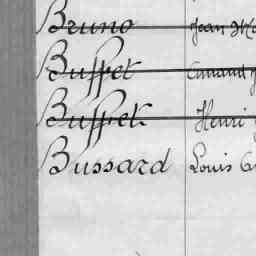 Bruno Jean
Buffet Armand
Buffet Henri
Bussard Louis